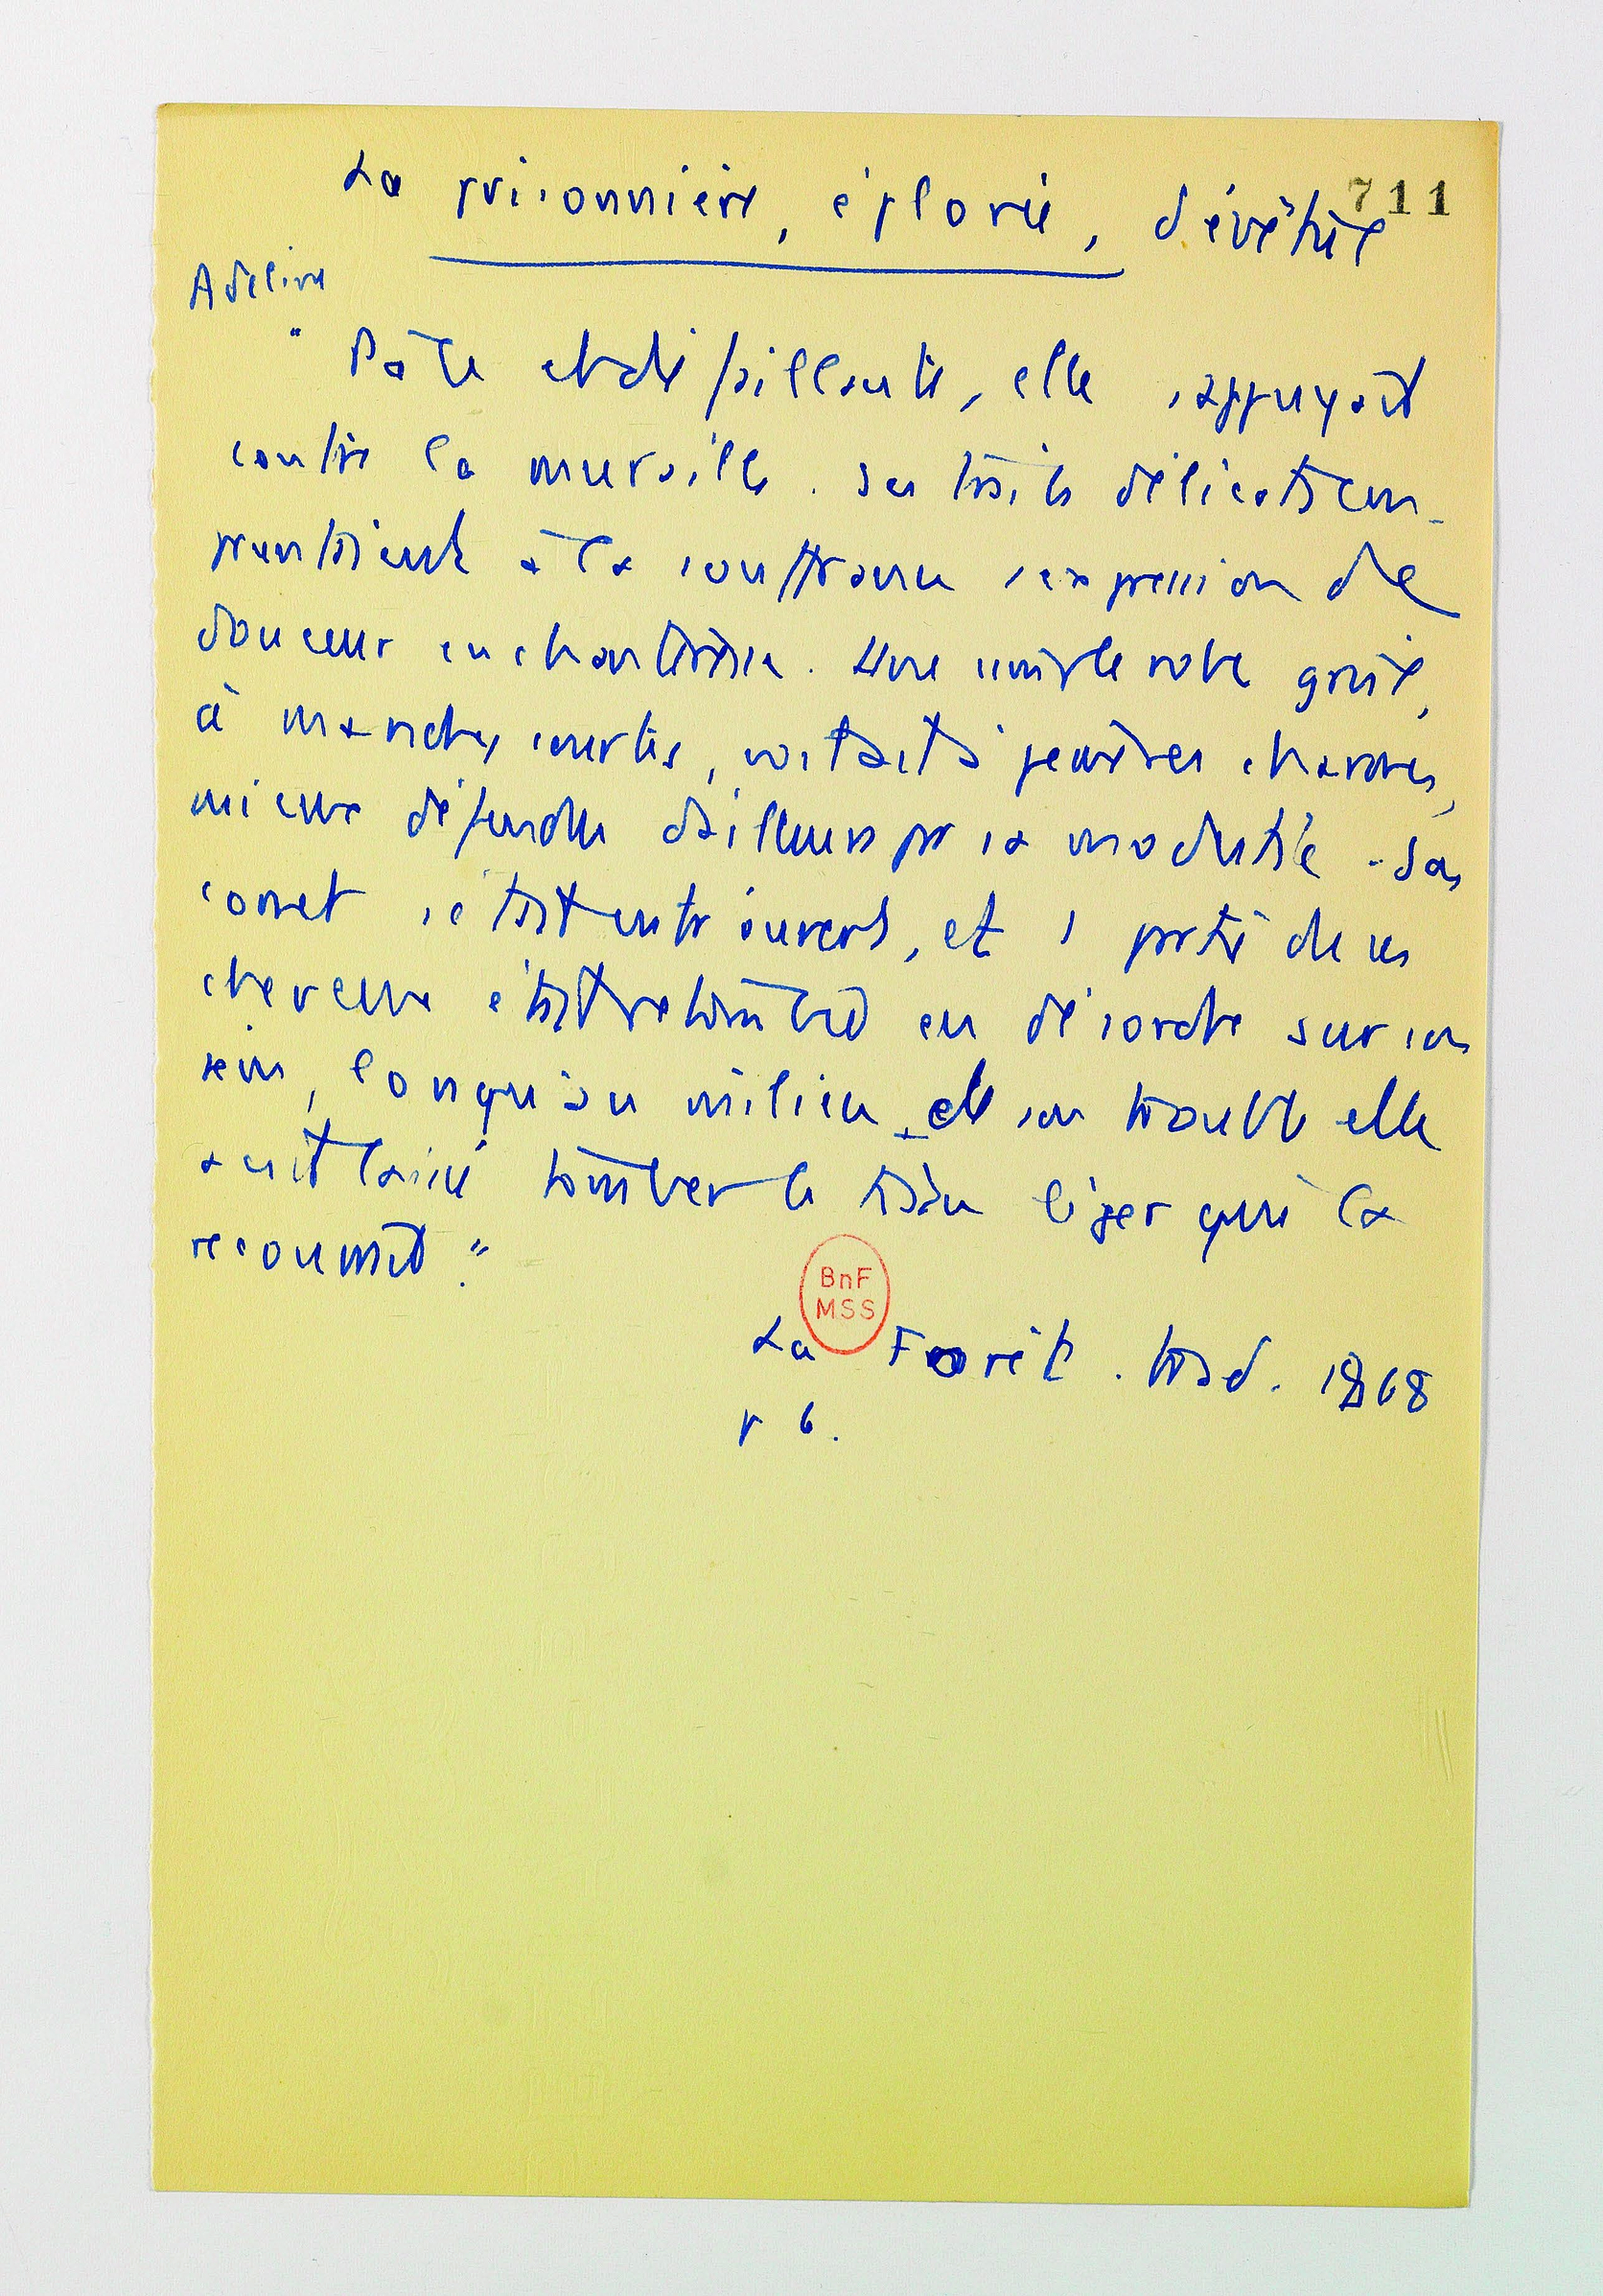 711
La prisonnière, éplorée, dévêtue
Adeline
" Pâle et défaillante, elle s'appuyait
contre la muraille. Ses traits délicats em-
pruntaient à la souffrance l'expression de
douceur enchanteresse. Une simple robe grise,
à manches courtes, voilait à peine ses charmes,
mieux défendus d'ailleurs par sa modestie. Son
corset s'était entr'ouvert, et 1 partie de ses
cheveux était retombée en désordre sur son
sein, lorsqu'au milieu de son trouble elle
avait laissé tomber le tissu léger qui la
recouvrait."
BnF
MSS
La Forêt. trad. 1868
p 6.